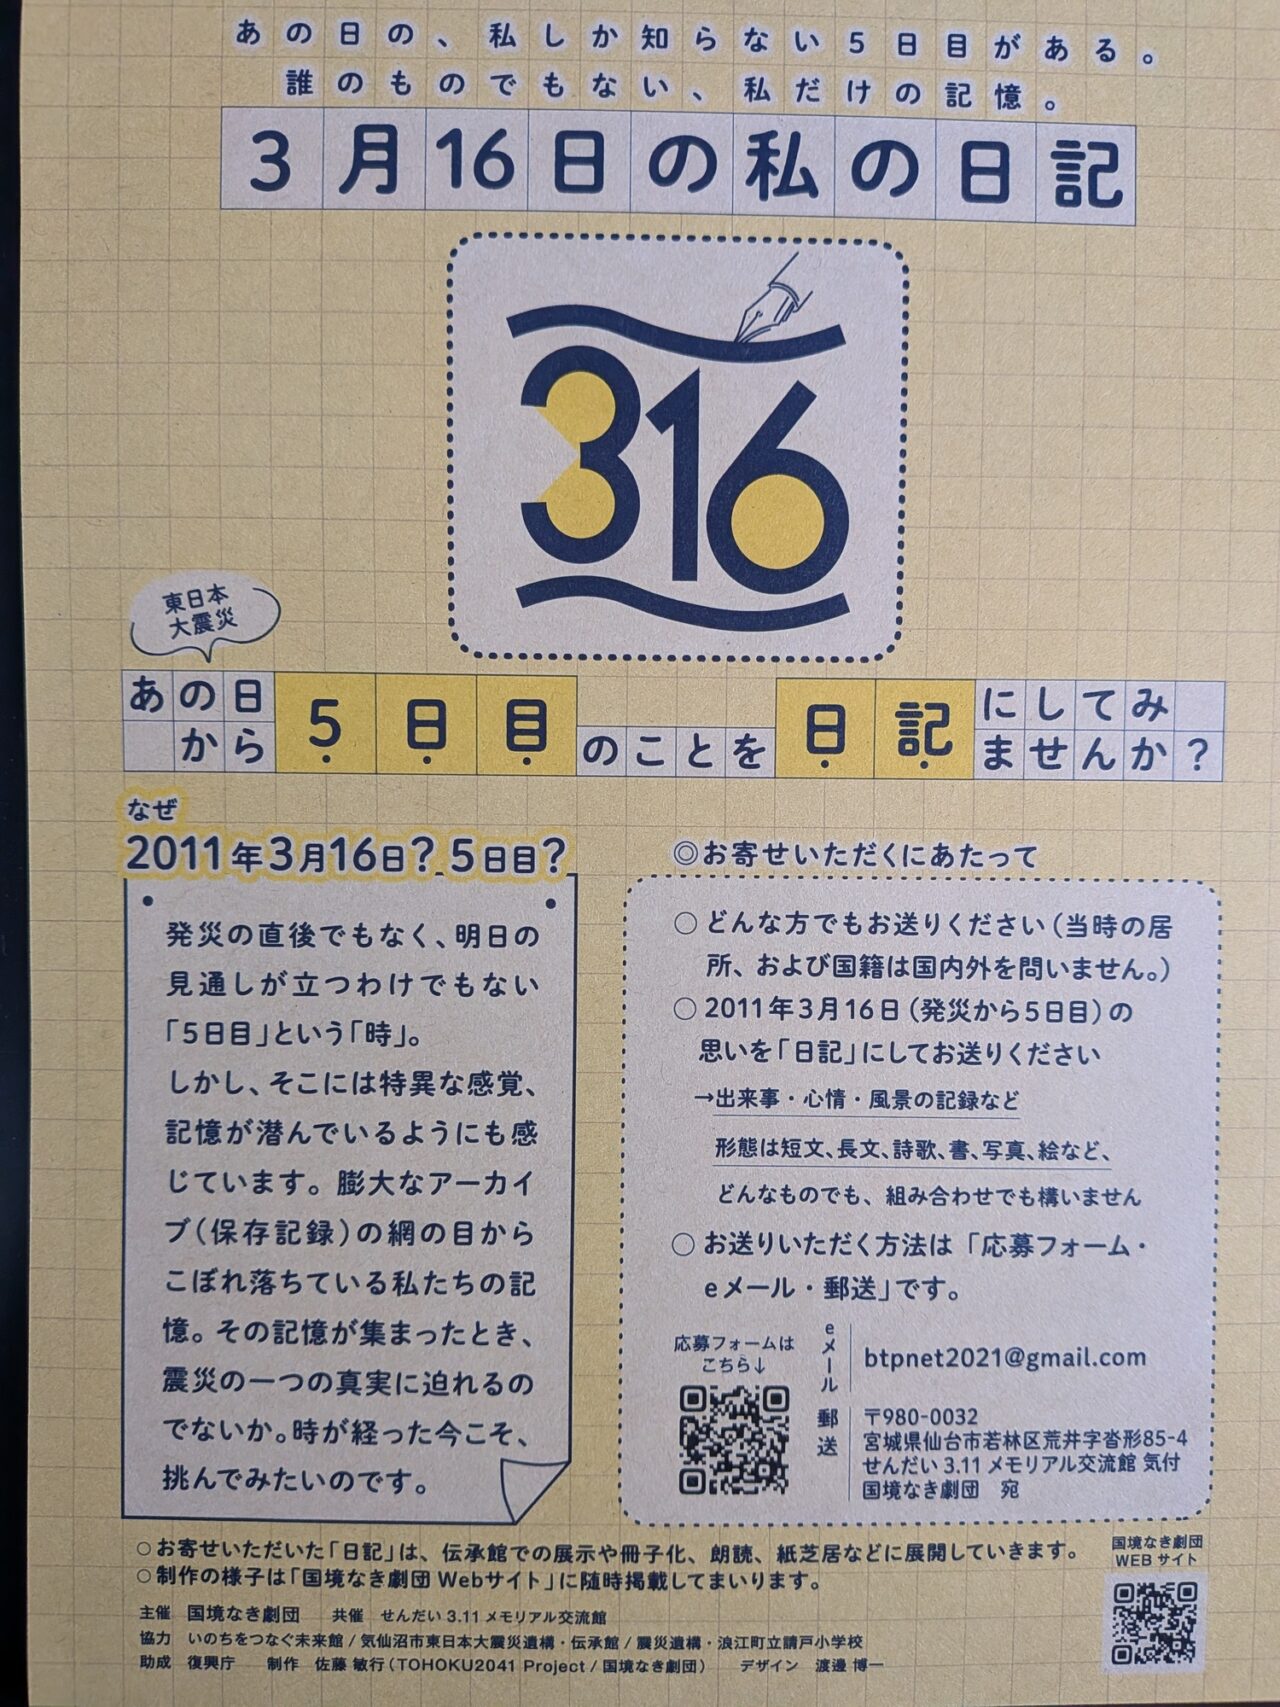 あの日の、私しか知らない5日目がある。
誰のものでもない、私だけの記憶。
3月16日の私の日記
316
東日本
大震災
あの日から5日目のことを日記にしてみませんか?
なぜ
2011年3月16日?5日目?
発災の直後でもなく、明日の
見通しが立つわけでもない
「5日目」という「時」。
しかし、そこには特異な感覚、
記憶が潜んでいるようにも感
じています。膨大なアーカイ
ブ(保存記録)の網の目から
こぼれ落ちている私たちの記
憶。その記憶が集まったとき、
震災の一つの真実に迫れるの
でないか。時が経った今こそ、
挑んでみたいのです。
◎お寄せいただくにあたって
○どんな方でもお送りください(当時の居
所、および国籍は国内外を問いません。)
○2011年3月16日(発災から5日目)の
思いを「日記」にしてお送りください
→出来事・心情・風景の記録など
形態は短文、長文、詩歌、書、写真、絵など、
どんなものでも、組み合わせでも構いません
○お送りいただく方法は「応募フォーム・
eメール・郵送」です。
応募フォームは
こちら↓
eメール
btpnet2021@gmail.com
郵送
〒980-0032
宮城県仙台市若林区荒井字沓形85-4
せんだい3.11メモリアル交流館 気付
国境なき劇団 宛
○お寄せいただいた「日記」は、伝承館での展示や冊子化、朗読、紙芝居などに展開していきます。
○制作の様子は「国境なき劇団Webサイト」に随時掲載してまいります。
国境なき劇団
WEBサイト
主催 国境なき劇団 共催 せんだい3.11メモリアル交流館
協力 いのちをつなぐ未来館/気仙沼市東日本大震災遺構・伝承館/震災遺構・浪江町立請戸小学校
助成 復興庁 制作 佐藤 敏行(TOHOKU2041 Project/国境なき劇団) デザイン 渡邊 博一